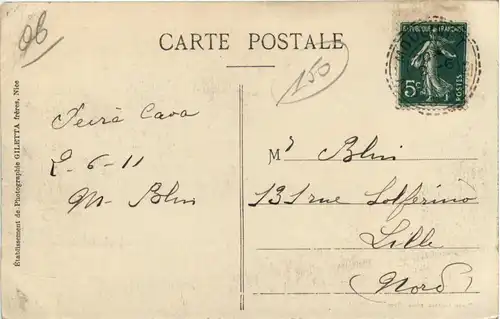 06
CARTE POSTALE
150
RÉPUBLIQUE FRANÇAISE
5c
POSTES
Peïra Cava
2-6-11
M. Blin
Mr Blin
131 rue Solferino
Lille
Nord
Établissement de Photographie GILETTA frères, Nice